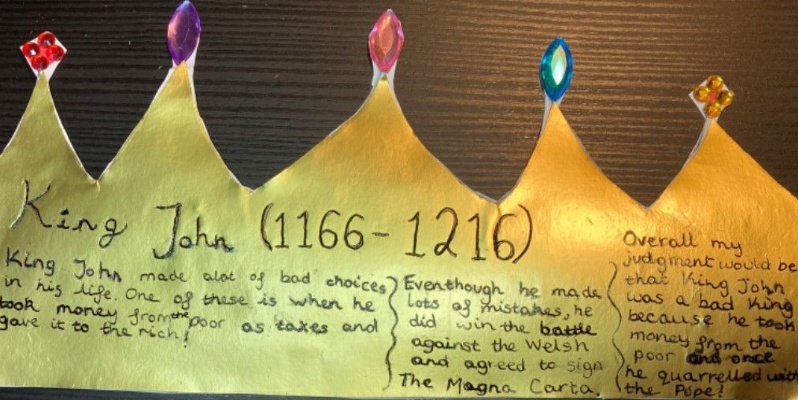 King John (1166-1216)
King John made alot of bad choices
in his life. One of these is when he
took money from the poor as taxes and
gave it to the rich!
Eventhough he made
lots of mistakes, he
did win the battle
against the Welsh
and agreed to sign
The Magna Carta.
Overall my
judgment would be
that King John
was a bad King
because he took
money from the
poor and once
he quarrelled with
the Pope!